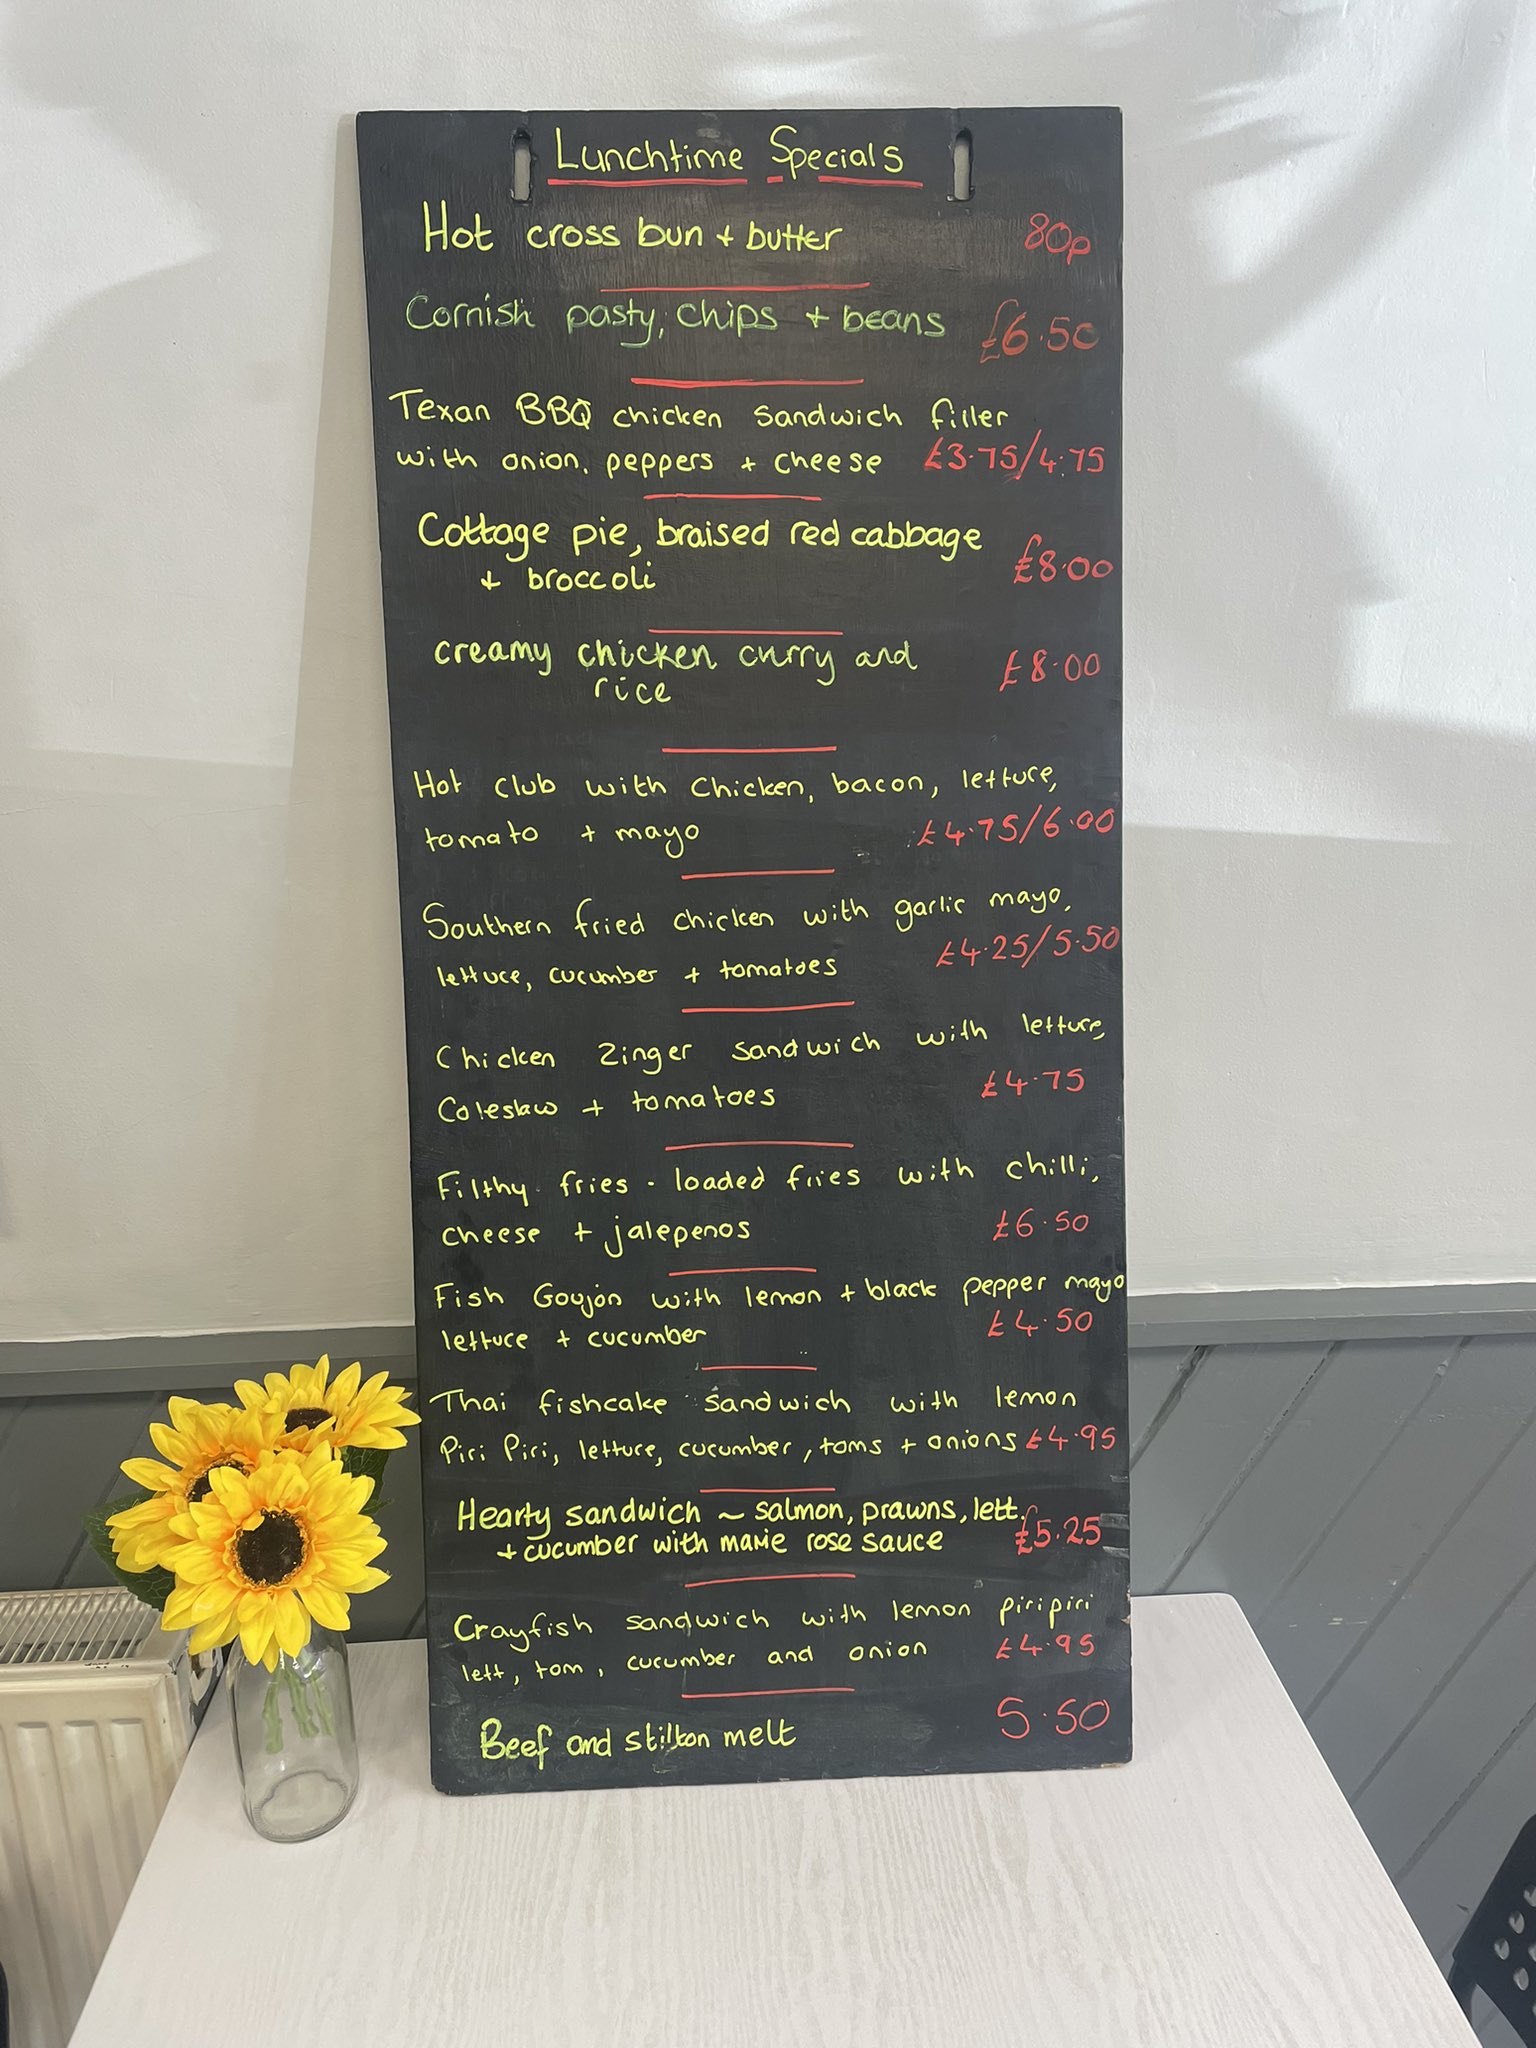 Lunchtime Specials
Hot cross bun + butter 80p
Cornish pasty, chips + beans £6.50
Texan BBQ chicken sandwich filler
with onion, peppers + cheese £3.75/4.75
Cottage pie, braised red cabbage
+ broccoli £8.00
creamy chicken curry and
rice £8.00
Hot club with chicken, bacon, lettuce,
tomato + mayo £4.75/6.00
Southern fried chicken with garlic mayo,
lettuce, cucumber + tomatoes £4.25/5.50
Chicken Zinger sandwich with lettuce,
Coleslaw + tomatoes £4.75
Filthy fries - loaded fries with chilli,
cheese + jalepenos £6.50
Fish Goujon with lemon + black pepper mayo
lettuce + cucumber £4.50
Thai fishcake sandwich with lemon
Piri Piri, lettuce, cucumber, toms + onions £4.95
Hearty sandwich ~ salmon, prawns, lett.
+ cucumber with marie rose sauce £5.25
Crayfish sandwich with lemon piri piri
lett, tom, cucumber and onion £4.95
Beef and stilton melt 5.50